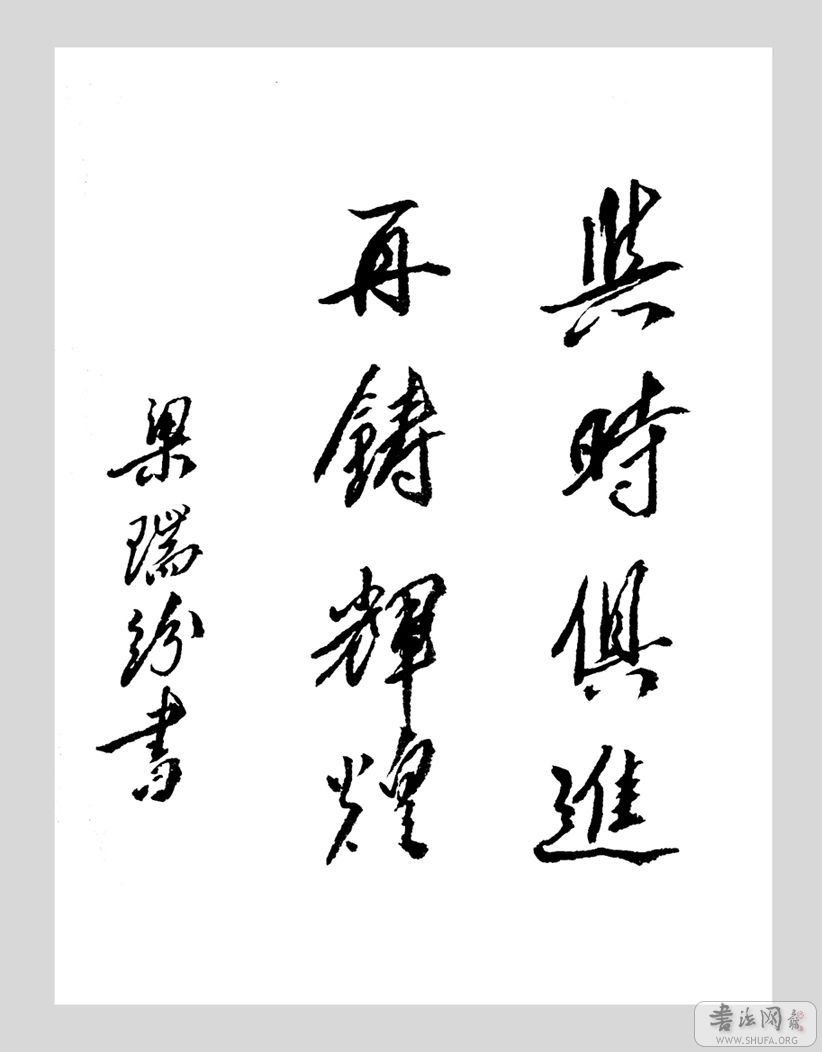 與時俱進
再鑄輝煌
梁瑞紛書
書法网
WWW.SHUFA.ORG